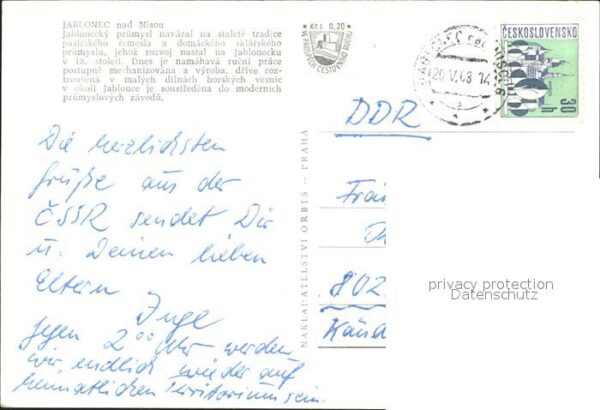 JABLONEC nad Nisou
Jablonecký průmysl navázal na staleté tradice
pasířského řemesla a domáckého sklářského
průmyslu, jehož rozvoj nastal na Jablonecku
v 18. století. Dnes je namáhavá ruční práce
postupně mechanizována a výroba, dříve roz-
troušená v malých dílnách horských vesnic
v okolí Jablonce je soustředěna do moderních
průmyslových závodů.
Kčs 0,20
VE PROSPĚCH CESTOVNÍHO RUCHU
JABLONEC nad NISOU
20.V.68-14
ČESKOSLOVENSKO
30 h
DDR
Die herzlichsten
Grüße aus der
ČSSR sendet Dir
u. Deinen lieben
Eltern
Inge
Gegen 2⁰⁰ Uhr werden
wir endlich wieder auf
heimatlichen Territorium sein.
NAKLADATELSTVÍ ORBIS — PRAHA
802
privacy protection
Datenschutz